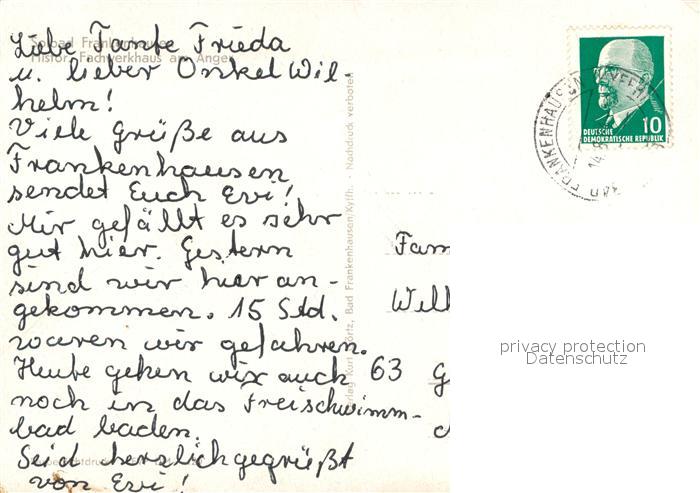 Liebe Tante Frieda
u. lieber Onkel Wil-
helm!
Viele Grüße aus
Frankenhausen
sendet Euch Evi!
Mir gefällt es sehr
gut hier. Gestern
sind wir hier an-
gekommen. 15 Std.
waren wir gefahren.
Heute gehen wir auch
noch in das Freischwimm-
bad baden.
Seid herzlich gegrüßt
von Evi!
Solbad Frankenhausen
Histor. Fachwerkhaus am Anger
Bad Frankenhausen/Kyffh. · Nachdruck verboten
Fam
63
DEUTSCHE
DEMOKRATISCHE REPUBLIK
10
BAD FRANKENHAUSEN
privacy protection
Datenschutz